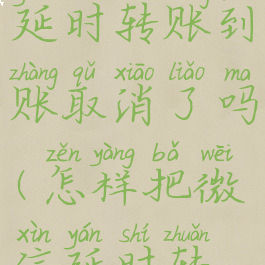 延时转账到
zhàng qǔ xiāo liǎo ma
账取消了吗
zěn yàng bǎ wēi
(怎样把微
xìn yán shí zhuǎn
信延时转